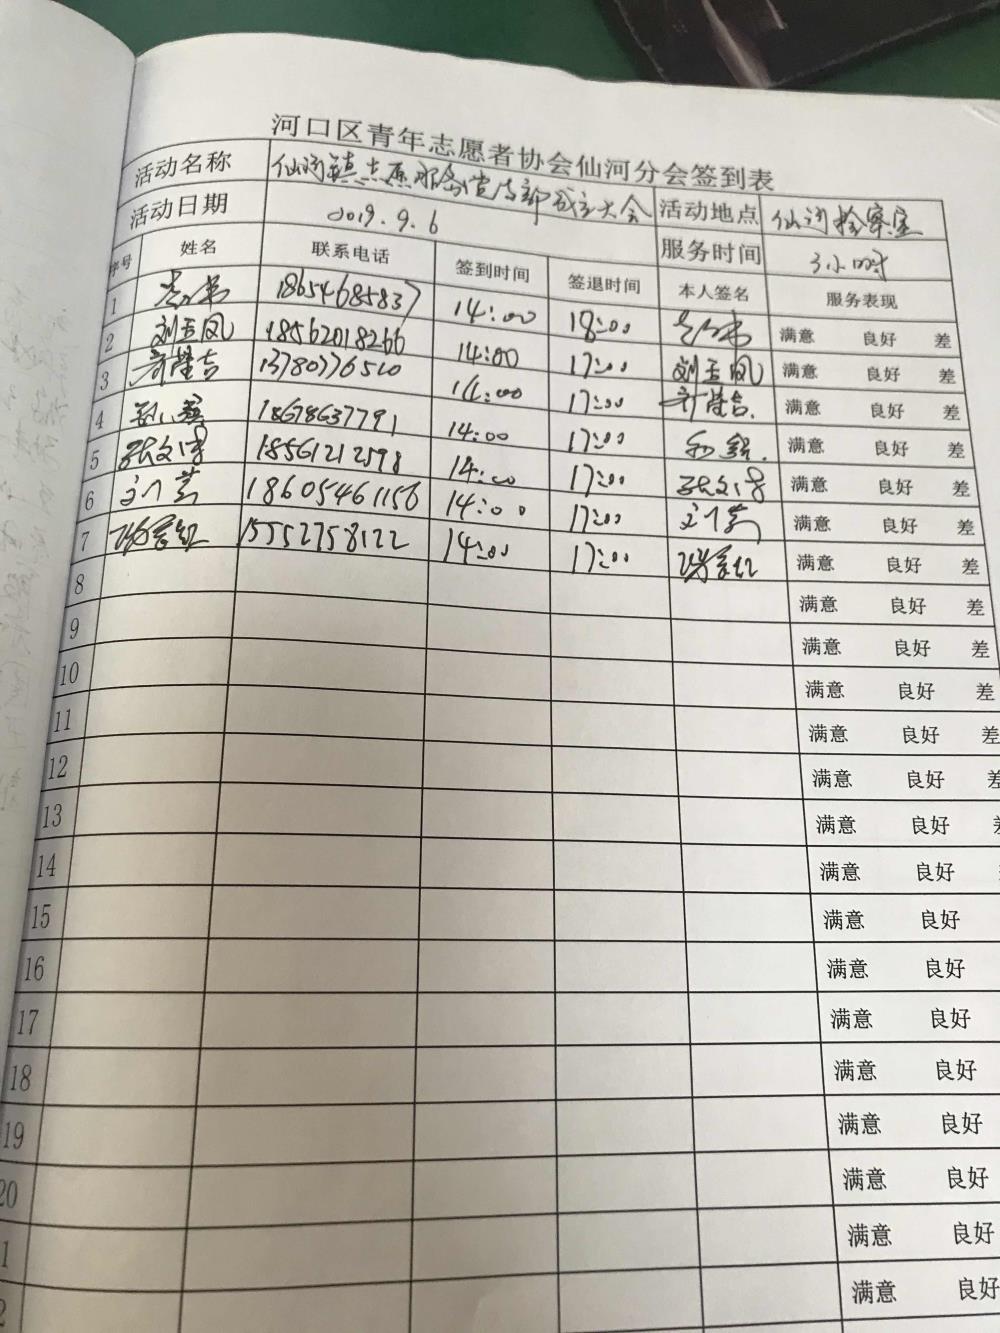 河口区青年志愿者协会仙河分会签到表
活动名称 仙河镇志愿服务党支部成立大会 活动地点 仙河检察室
活动日期 2019.9.6 服务时间 3小时
序号 姓名 联系电话 签到时间 签退时间 本人签名 服务表现
1 18654685837 14:00 18:00 满意 良好 差
2 刘玉凤 18562018266 14:00 17:00 刘玉凤 满意 良好 差
3 13780776510 14:00 17:00 满意 良好 差
4 18678637791 14:00 17:00 满意 良好 差
5 张文博 18561212598 14:00 17:00 张文博 满意 良好 差
6 18605461156 14:00 17:00 满意 良好 差
7 15552758122 14:00 17:00 满意 良好 差
8 满意 良好 差
9 满意 良好 差
10 满意 良好 差
11 满意 良好 差
12 满意 良好 差
13 满意 良好
14 满意 良好
15 满意 良好
16 满意 良好
17 满意 良好
18 满意 良好
19 满意 良好
20 满意 良好
1 满意 良好
2 满意 良好